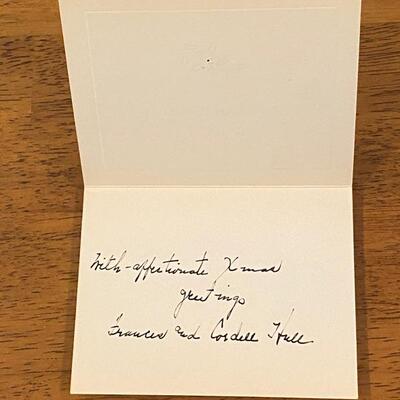 With affectionate Xmas
greetings
Frances and Cordell Hull